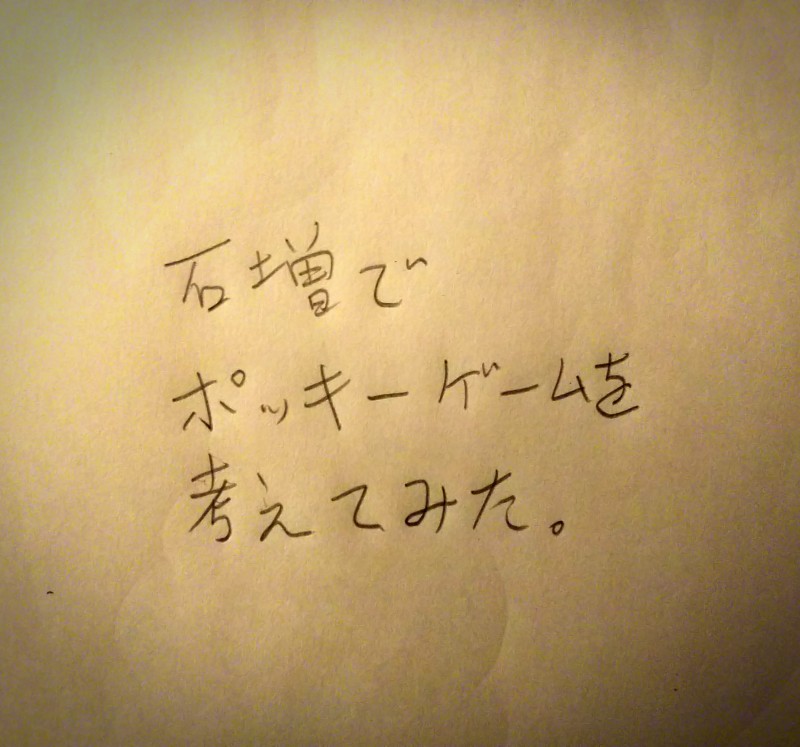 石増で
ポッキーゲームを
考えてみた。